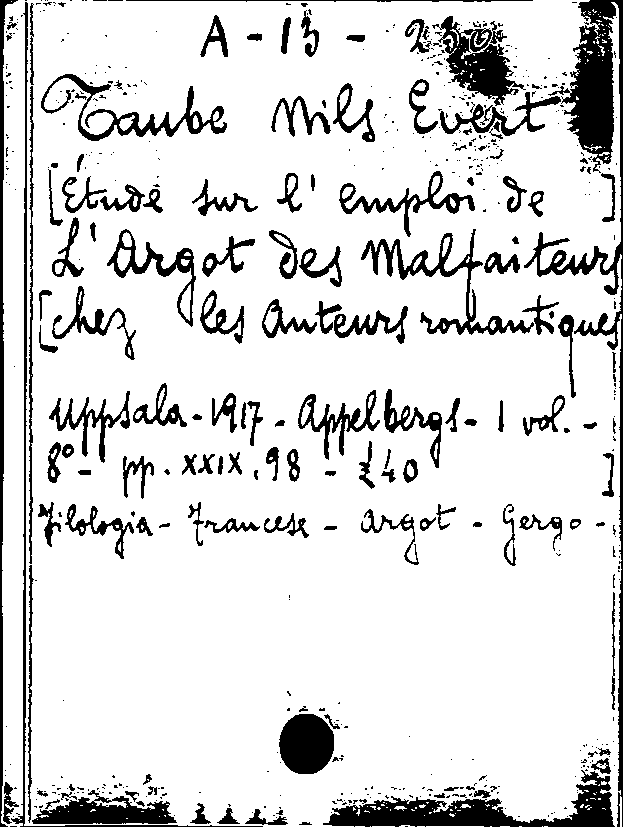 A - 13 - 230
Taube Nils Evert
[Étude sur l' emploi de ]
L'Argot des Malfaiteurs
[chez les Auteurs romantiques
Uppsala - 1917 - Appelbergs - 1 vol. -
8° - pp. XXIX, 98 - £ 40 ]
Filologia - Francese - Argot - Gergo -